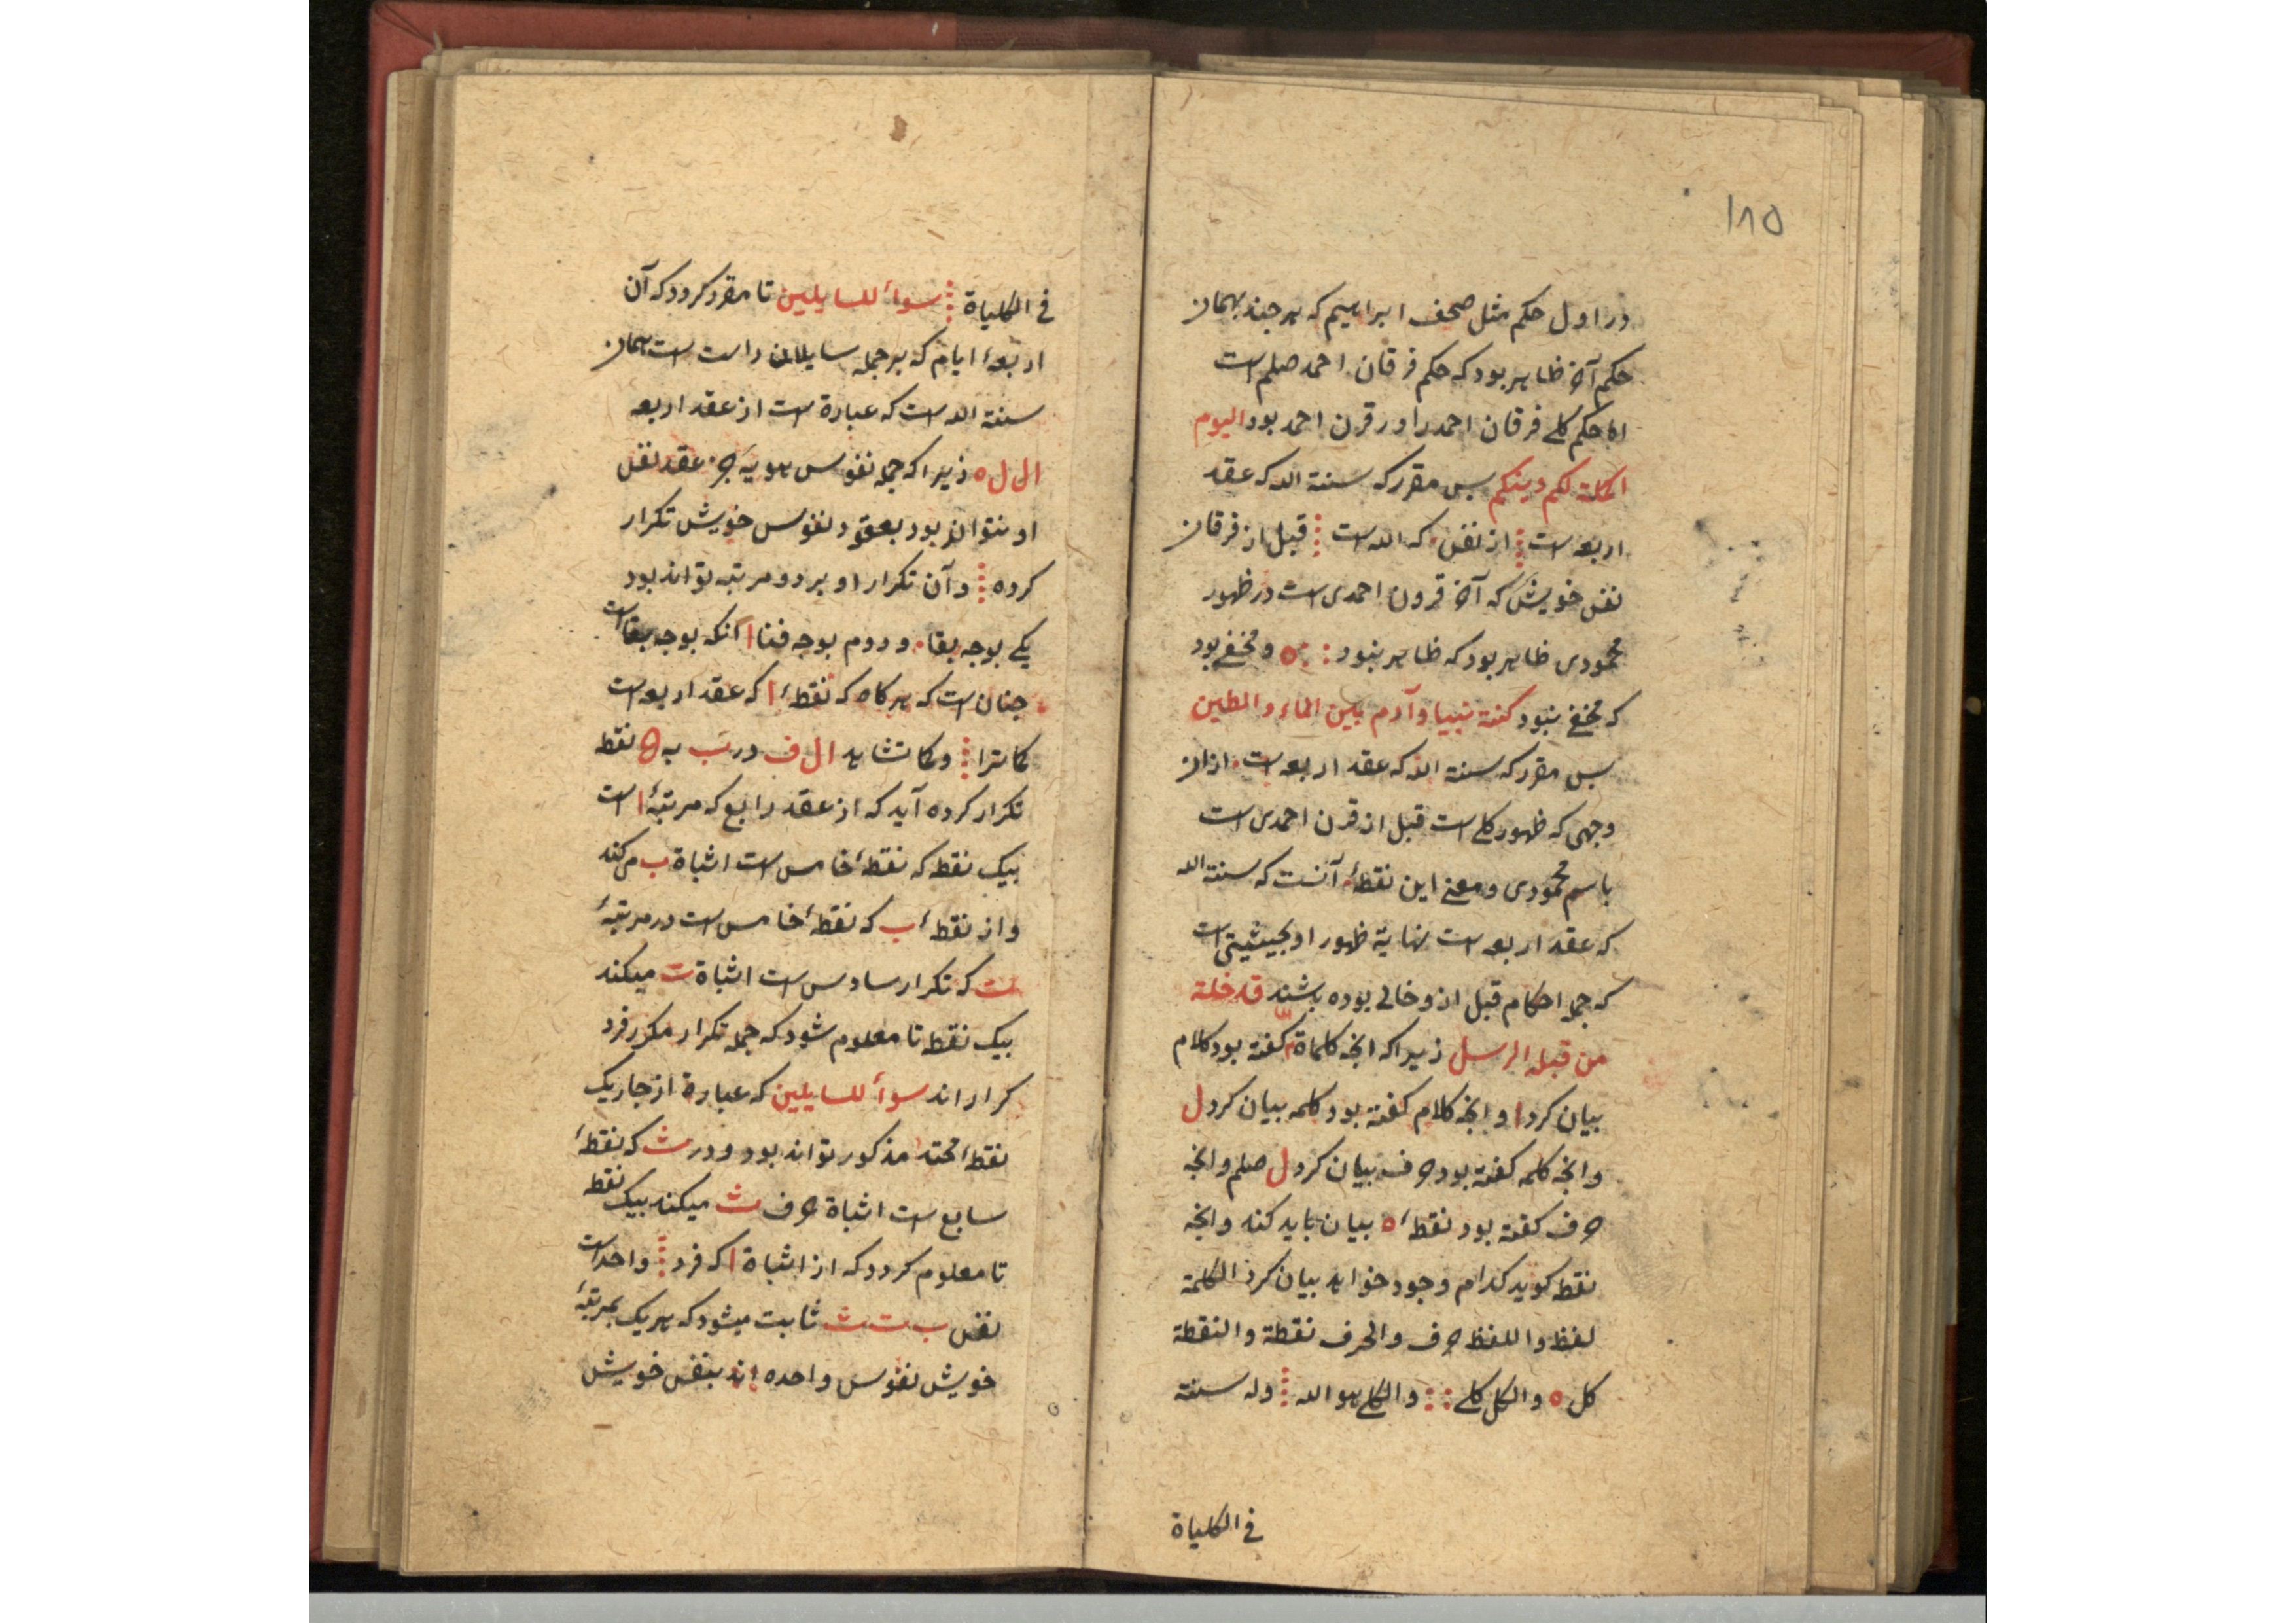 ۱۸۵
در اول حکم مثل صحف ابراهیم که هر چند بهمان
حکم آخر ظاهر بود که حکم فرقان احمد صلم است
اما حکم کلے فرقان احمد را در قرن احمد بود الیوم
اکملت لکم دینکم پس مقرر که سنة الله که عقد
اربعه است ⁞ از نفس که الله است ⁞ قبل از فرقان
نفس خویش که آخر قرون احمدی است در ظهور
محمودی ظاهر بود که ظاهر نبود : ه و مخفے بود
که مخفے نبود کنت نبیا و آدم بین الماء و الطین
پس مقرر که سنة الله که عقد اربعه است از آن
وجهی که ظهور کلے است قبل از قرن احمدی است
باسم محمودی و معنے این نقطهٔ آنست که سنة الله
که عقد اربعه است نهایة ظهور او بحیثیتی است
که جمله احکام قبل ازو خالی بوده باشند قد خلة
من قبله الرسل زیرا که انجه کلماة گفته بود کلام
بیان کرد ا و انجه کلام گفته بود کلمه بیان کرد ل
و انجه کلمه گفته بود حرف بیان کرد ل صلم و انجه
حرف گفته بود نقطهٔ ه بیان باید کند و انجه
نقطه کوید کدام وجود خواهد بیان کرد الکلمة
لفظ و اللفظ حرف و الحرف نقطة و النقطة
کل ه و الکل کلے :: و الکلے هو الله ⁞ وله سنة
فی الکلیاة
فی الکلیاة ⁞ سوأ للسایلین تا مقرر کردد که آن
اربعهٔ ایام که بر جمله سایلان راست است همان
سنة الله است که عبارة است از عقد اربعه
ال ل ه زیرا که جمله نفوس هویه جز عقد نفس
او نتواند بود بعقود نفوس خویش تکرار
کرده ⁞ و آن تکرار او بر دو مرتبه تواند بود
یکے بوجه بقا و دوم بوجه فنا ا آنکه بوجه بقا است
جنان است که هر کاه که نقطهٔ ا که عقد اربعه است
کاترا ⁞ و کاتشاهد ال ف در ب به ه نقطه
تکرار کرده آید که از عقد رابع که مرتبهٔ ا است
بیک نقطه که نقطهٔ خامس است اثباة ب می کند
و از نقطهٔ ب که نقطهٔ خامس است در مرتبهٔ
ت که تکرار سادس است اثباة ت میکند
بیک نقطه تا معلوم شود که جمله تکرار مکرر فرد
کرار اند سوأ للسایلین که عبارة از جار یک
نقطهٔ محتد مذکور تواند بود و در ث که نقطهٔ
سابع است اثباة حرف ث میکند بیک نقطه
تا معلوم کردد که از اثباة ا که فرد ⁞ واحد است
نفس ب ت ث ثابت میشود که هر یک بمرتبهٔ
خویش نفوس واحده اند بنفس خویش